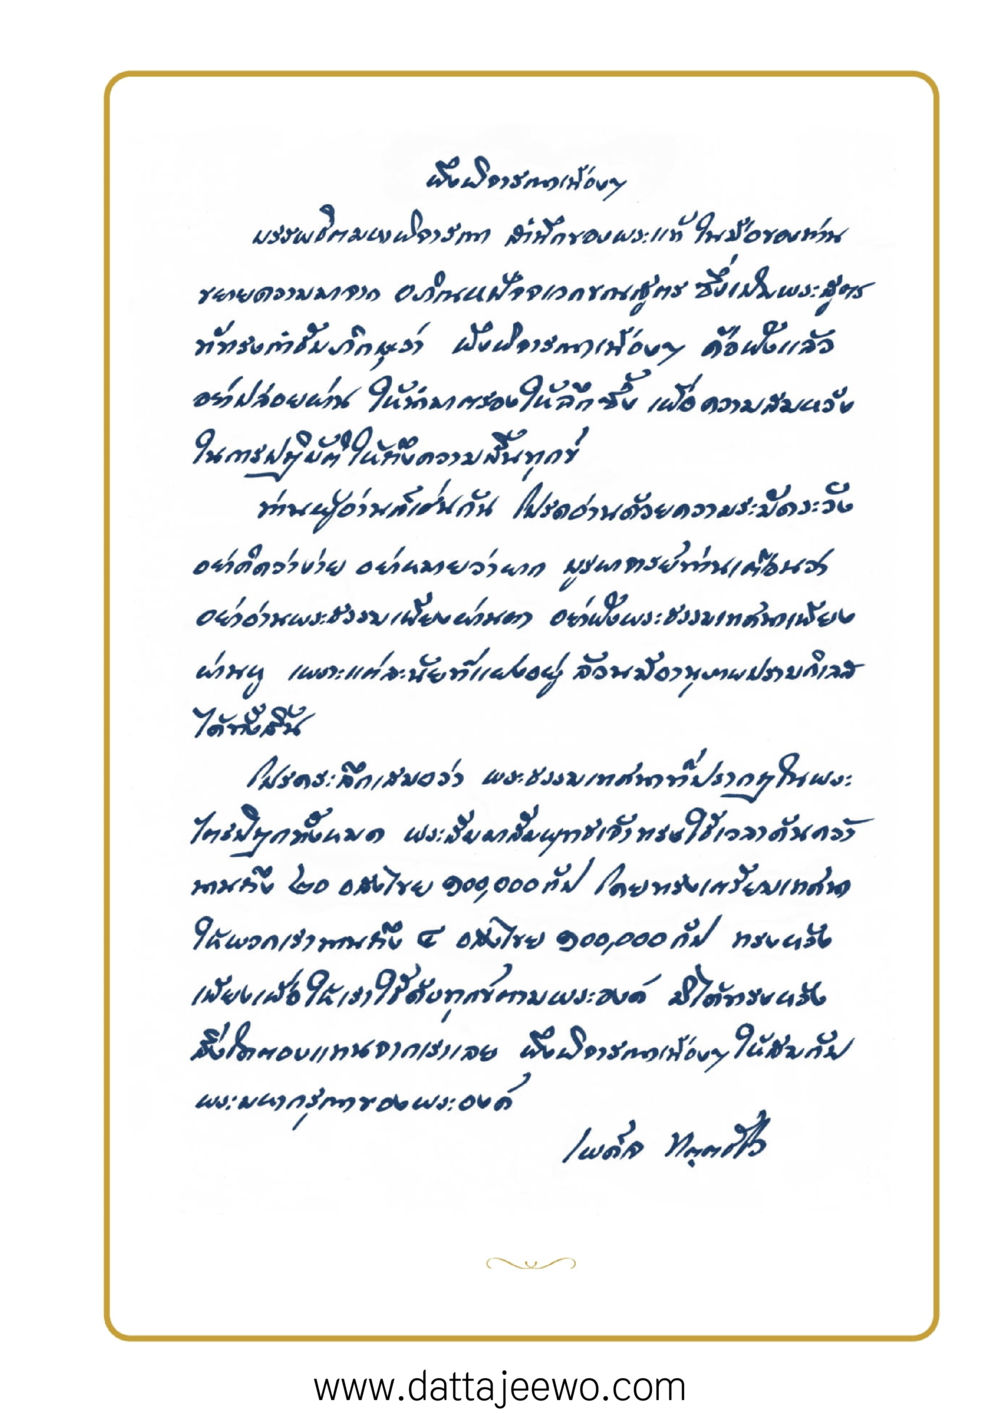 พึงพิจารณาเนืองๆ
บรรพชิตมองพิจารณา สำนึกของพระแท้ ในมือของท่าน
ขยายความมาจาก อภิณหปัจจเวกขณสูตร ซึ่งเป็นพระสูตร
ที่ทรงกำชับภิกษุว่า พึงพิจารณาเนืองๆ คือฟังแล้ว
อย่าปล่อยผ่าน ให้นำมาตรองให้ลึกซึ้ง เพื่อความสมหวัง
ในการปฏิบัติให้ถึงความสิ้นทุกข์
ท่านผู้อ่านก็เช่นกัน โปรดอ่านด้วยความระมัดระวัง
อย่าคิดว่าง่าย อย่าหมายว่ายาก บูรพาจารย์ท่านเตือนว่า
อย่าอ่านพระธรรมเพียงผ่านตา อย่าฟังพระธรรมเทศนาเพียง
ผ่านหู เพราะแต่ละนัยที่แฝงอยู่ ล้วนมีอานุภาพปราบกิเลส
ได้ทั้งสิ้น
โปรดระลึกเสมอว่า พระธรรมเทศนาที่ปรากฏในพระ
ไตรปิฎกทั้งหมด พระสัมมาสัมพุทธเจ้าทรงใช้เวลาค้นคว้า
นานถึง ๒๐ อสงไขย ๑๐๐,๐๐๐ กัป โดยทรงเตรียมเทศนา
ให้พวกเรานานถึง ๔ อสงไขย ๑๐๐,๐๐๐ กัป ทรงหวัง
เพียงเพื่อให้เราใช้ดับทุกข์ตามพระองค์ มิได้ทรงหวัง
สิ่งใดตอบแทนจากเราเลย พึงพิจารณาเนืองๆ ให้สมกับ
พระมหากรุณาของพระองค์
เผด็จ ทตฺตชีโว
www.dattajeewo.com